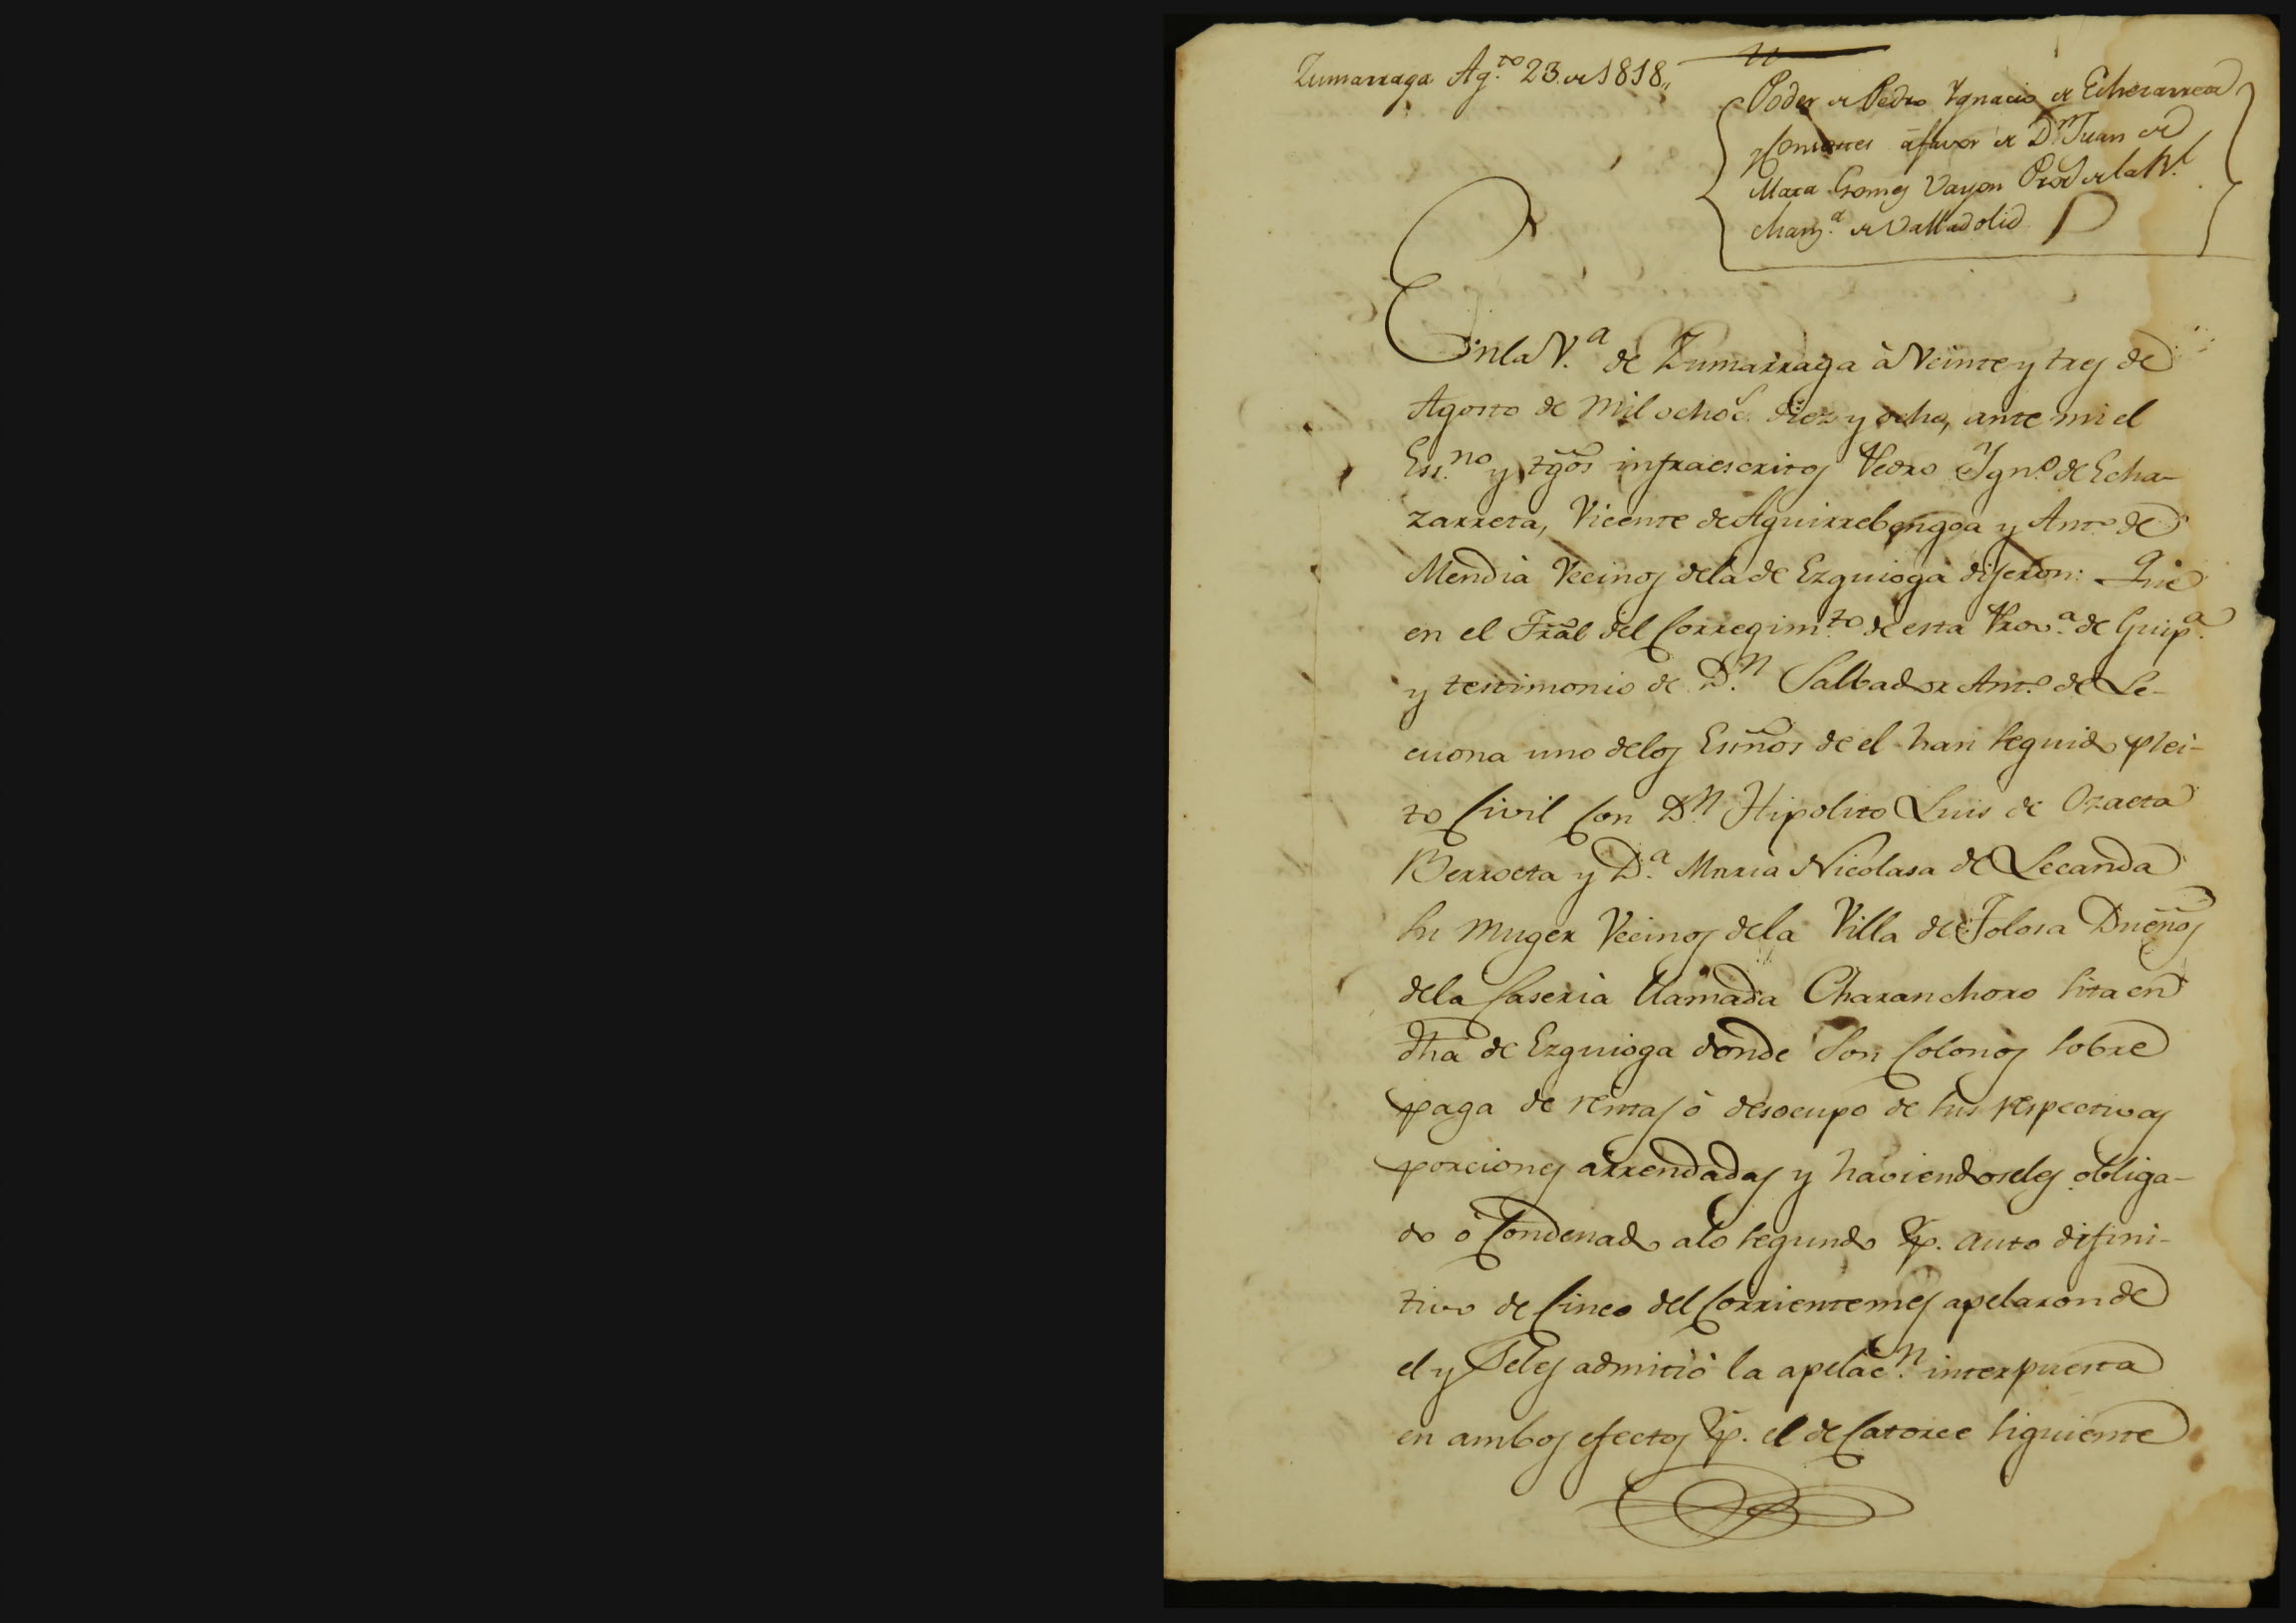 Zumarraga Ag.to 23 de 1818,,
Poder de Pedro Ygnacio de Echezarreta
y consortes á favor de D.n Juan de
Mara Gomez Vayon Pror de la R.l
chanz.a de Valladolid
En la V.a de Zumarraga à Veinte y tres de
Agosto de mil ochoc.s diez y ocho, ante mi el
Ess.no y tgõs infraescritos Pedro Ygn.o de Echa-
zarreta, Vicente de Aguirrebengoa y Ant.o de
Mendia Vecinos dela de Ezquioga dijeron: Que
en el Trãl del Corregim.to de esta Prov.a de Guip.a
y testimonio de D.n Salbador Ant.o de Le-
cuona uno delos Esnõs de el han seguido plei-
to Civil Con D.n Hipolito Luis de Ozaeta
Berroeta y D.a Maria Nicolasa de Lecanda
su muger Vecinos dela Villa de Tolosa Dueños
dela Caseria llamada Charanchoro sita en
dha de Ezquioga donde son Colonos sobre
paga de rentas ò desocupo de sus respectivas
porciones arrendadas y haviendoseles obliga-
do ò Condenado alo segundo p. auto difini-
tivo de Cinco del Corriente mes apelaron de
el y seles admitiò la apelac.n interpuesta
en ambos efectos p. el de Catorce siguiente